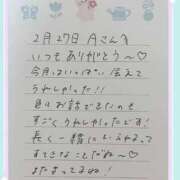 2月27日 Aさん♡
いつもありがとう〜♡
今月はいっぱい会えて
うれしかった!!
お話できたのも
すごくうれしかったです!
長く一緒にいられるって
すてきなことだね〜♡
またまってるね!